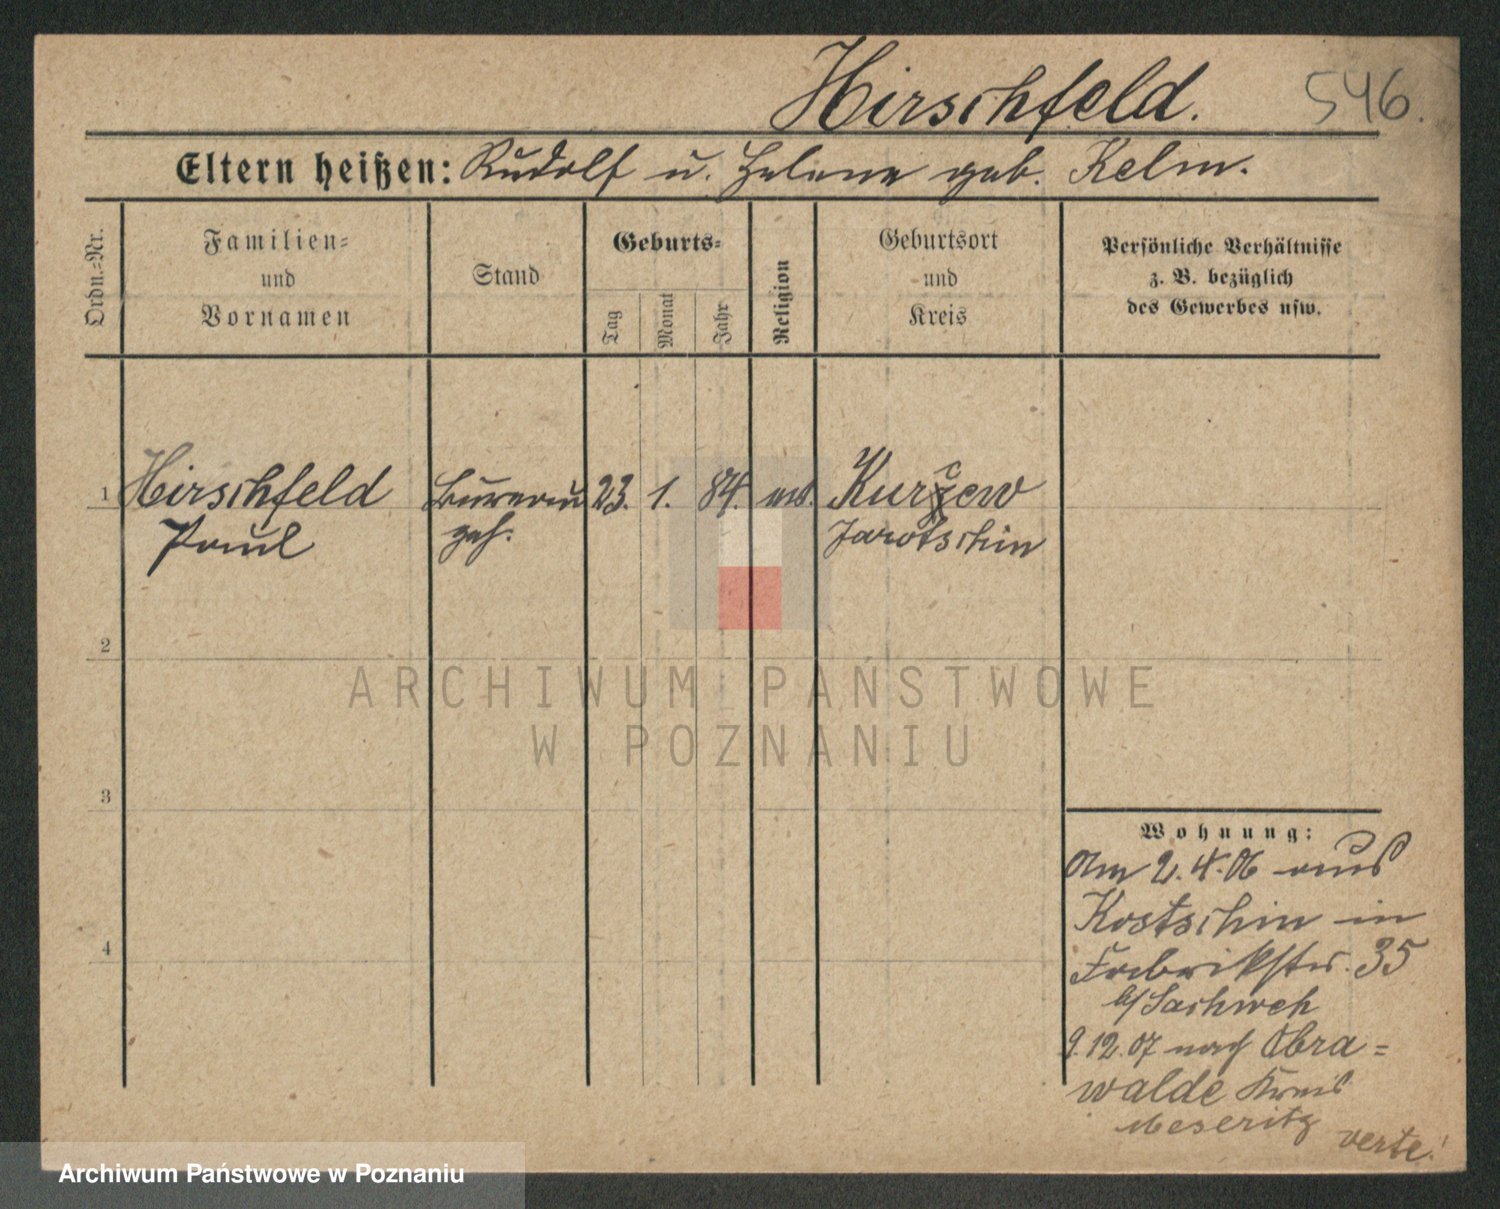 Hirschfeld. 546.
Eltern heißen: Rudolf u. Helene geb. Kelm.
Ordn.=Nr.
Familien=
und
Vornamen
Stand
Geburts=
Tag
Monat
Jahr
Religion
Geburtsort
und
Kreis
Persönliche Verhältnisse
z. B. bezüglich
des Gewerbes usw.
1 Hirschfeld Bureau 23. 1. 84. ev. Kurcew
Paul geh. Jarotschin
2
ARCHIWUM PAŃSTWOWE
W POZNANIU
3
Wohnung:
Am 2.4.06 aus
Kostschin in
4
Fabrikstr. 35
b/ Sachweh
9.12.07 nach Obra=
walde Kreis
Meseritz
verte!
Archiwum Państwowe w Poznaniu